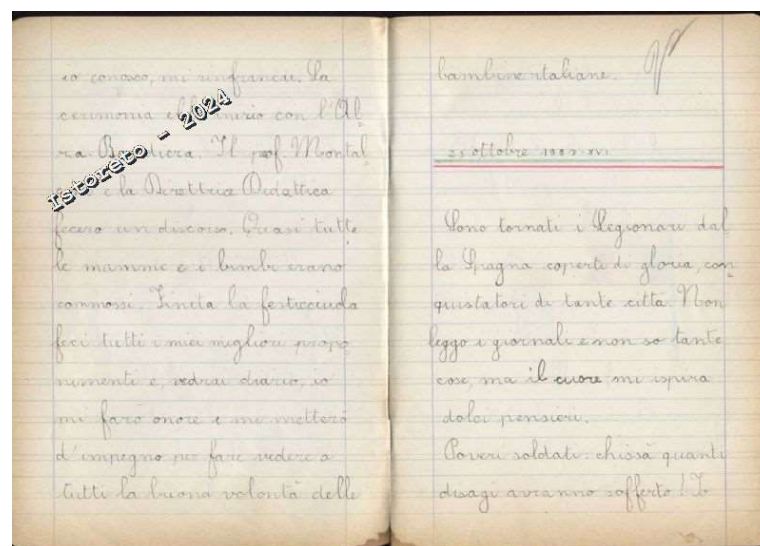 io conosco, mi rinfrancai. La
cerimonia ebbe inizio con l'Al
za Bandiera. Il prof. Montal
e la Direttrice Didattica
fecero un discorso. Quasi tutte
le mamme e i bimbi erano
commossi. Finita la festicciuola
feci tutti i miei migliori propo
nimenti e, vedrai diario, io
mi farò onore e mi metterò
d'impegno per fare vedere a
tutti la buona volontà delle
Istoreto - 2024
bambine italiane.
25 ottobre XVI
Sono tornati i Legionari dal
la Spagna coperti di gloria, con
quistatori di tante città. Non
leggo i giornali e non so tante
cose, ma il cuore mi ispira
dolci pensieri.
Poveri soldati: chissà quanti
disagi avranno sofferto! Io